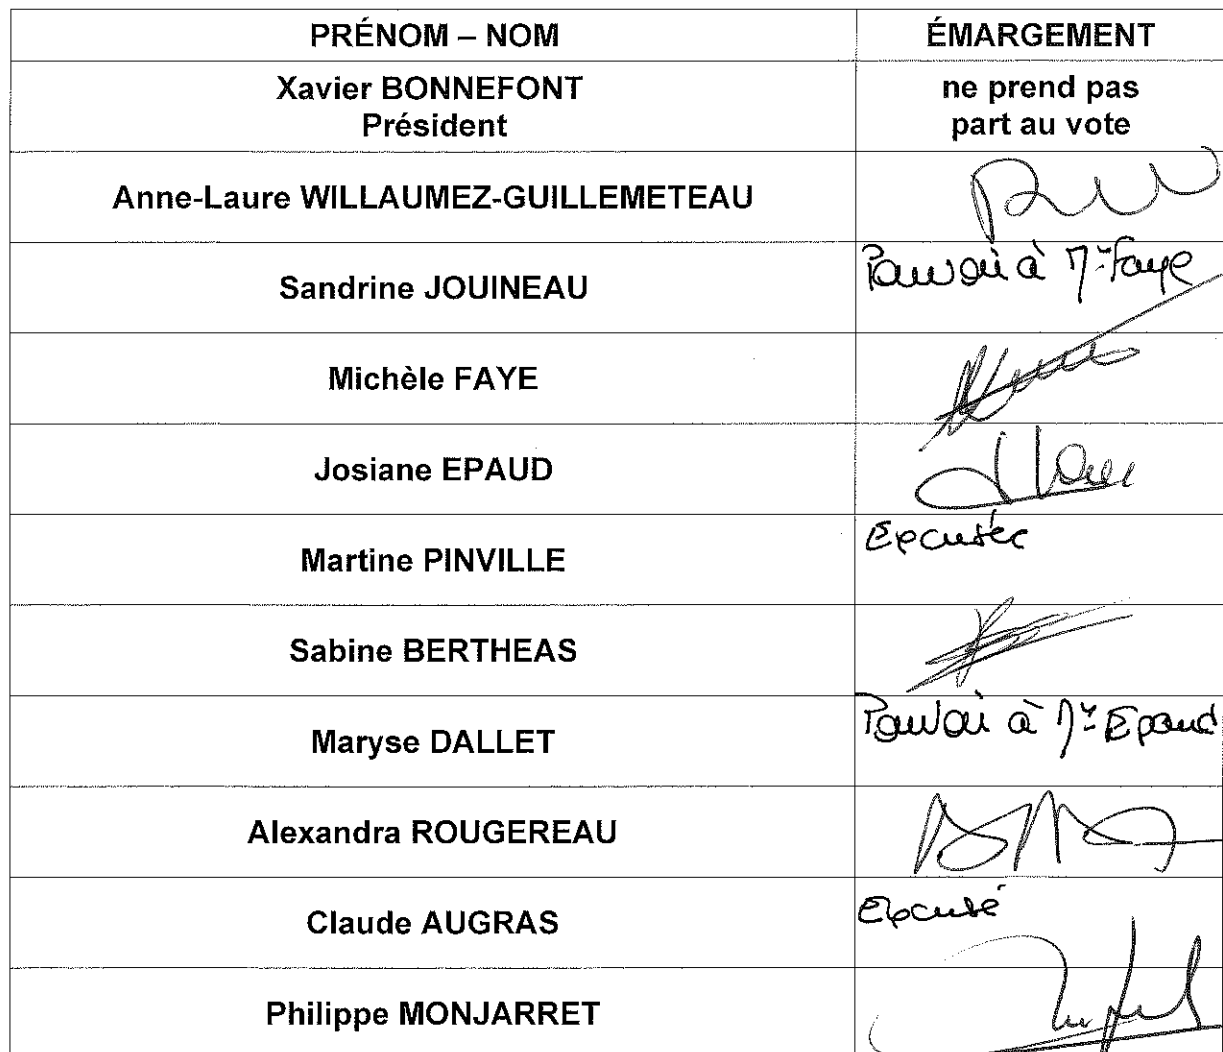 PRÉNOM – NOM ÉMARGEMENT
Xavier BONNEFONT
Président
ne prend pas
part au vote
Anne-Laure WILLAUMEZ-GUILLEMETEAU
Sandrine JOUINEAU Pouvoir à Me Faye
Michèle FAYE
Josiane EPAUD
Martine PINVILLE Excusée
Sabine BERTHEAS
Maryse DALLET Pouvoir à Me Epaud
Alexandra ROUGEREAU
Claude AUGRAS Excusé
Philippe MONJARRET